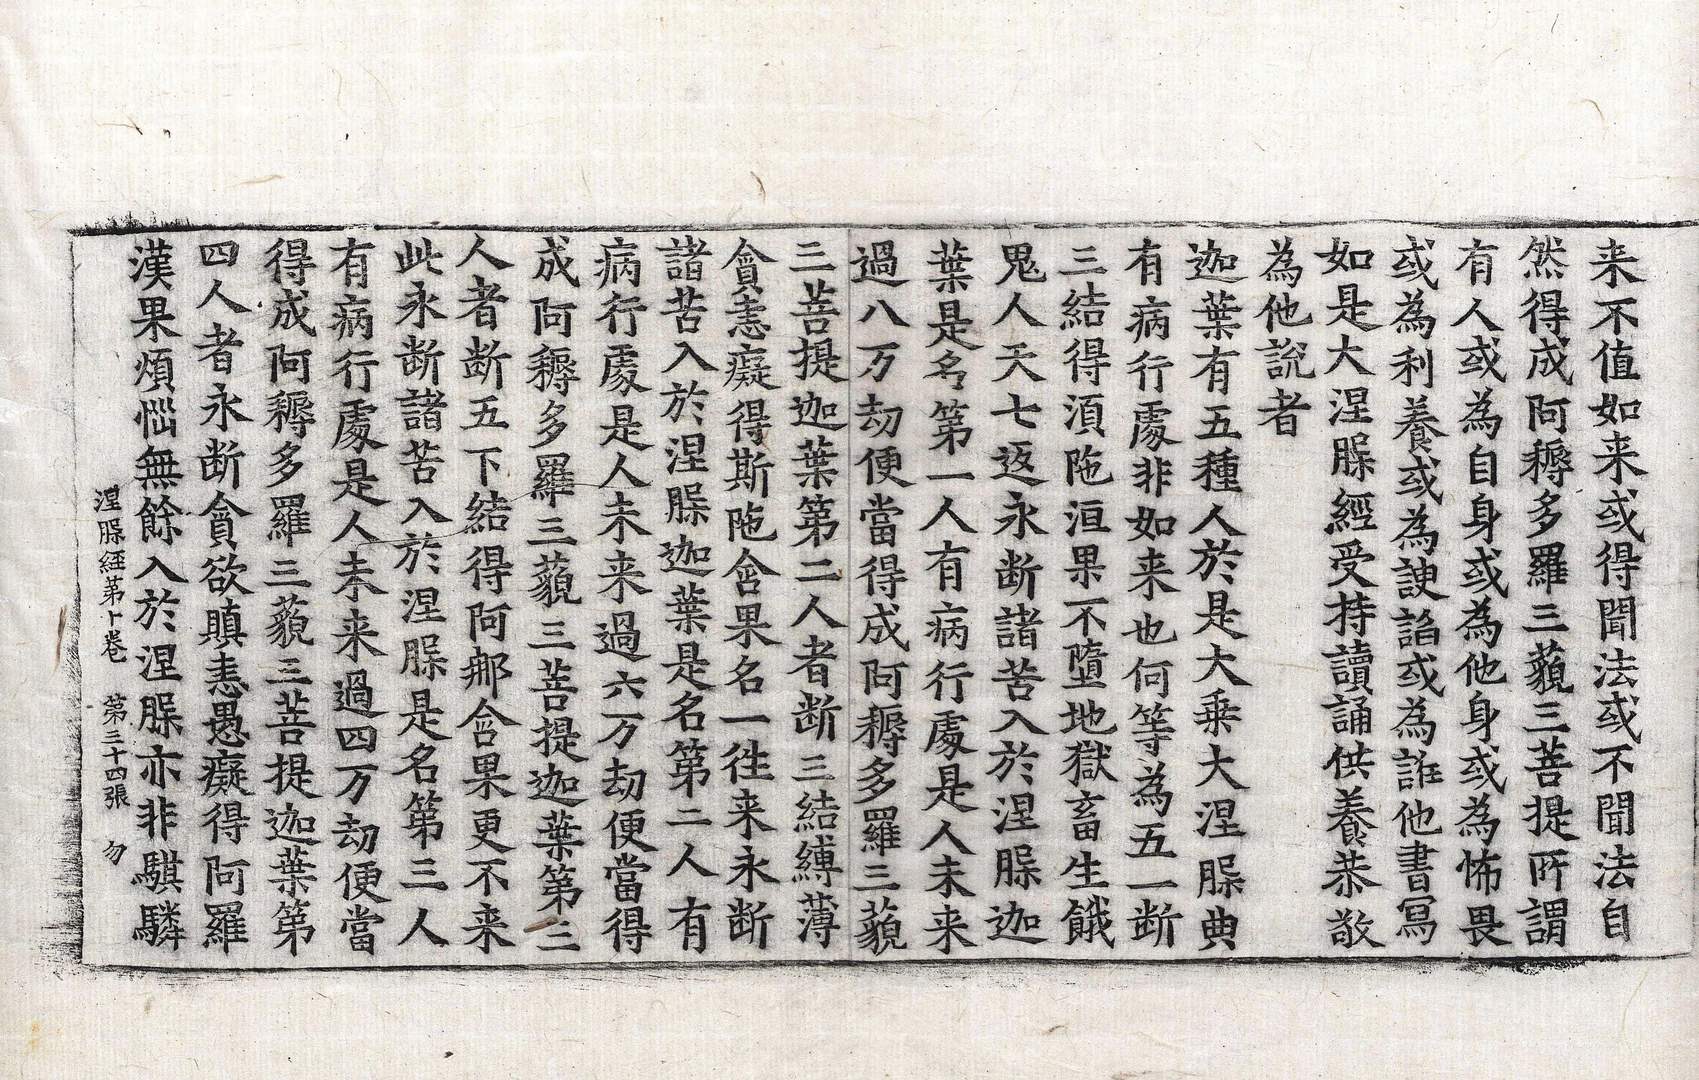 来不值如来或得聞法或不聞法自
然得成阿耨多羅三藐三菩提所謂
有人或為自身或為他身或為怖畏
或為利養或為諛諂或為誑他書寫
如是大涅槃經受持讀誦供養恭敬
為他說者
迦葉有五種人於是大乗大涅槃典
有病行處非如来也何等為五一断
三結得湏陁洹果不墮地獄畜生餓
鬼人天七返永断諸苦入於涅槃迦
葉是名第一人有病行處是人未来
過八万劫便當得成阿耨多羅三藐
三菩提迦葉第二人者断三結縛薄
貪恚癡得斯陁含果名一往来永断
諸苦入於涅槃迦葉是名第二人有
病行處是人未来過六万劫便當得
成阿耨多羅三藐三菩提迦葉第三
人者断五下結得阿那含果更不来
此永断諸苦入於涅槃是名第三人
有病行處是人未来過四万劫便當
得成阿耨多羅三藐三菩提迦葉第
四人者永断貪欲瞋恚愚癡得阿羅
漢果煩惱無餘入於涅槃亦非騏驎
涅槃経第十卷 第三十四張 勿